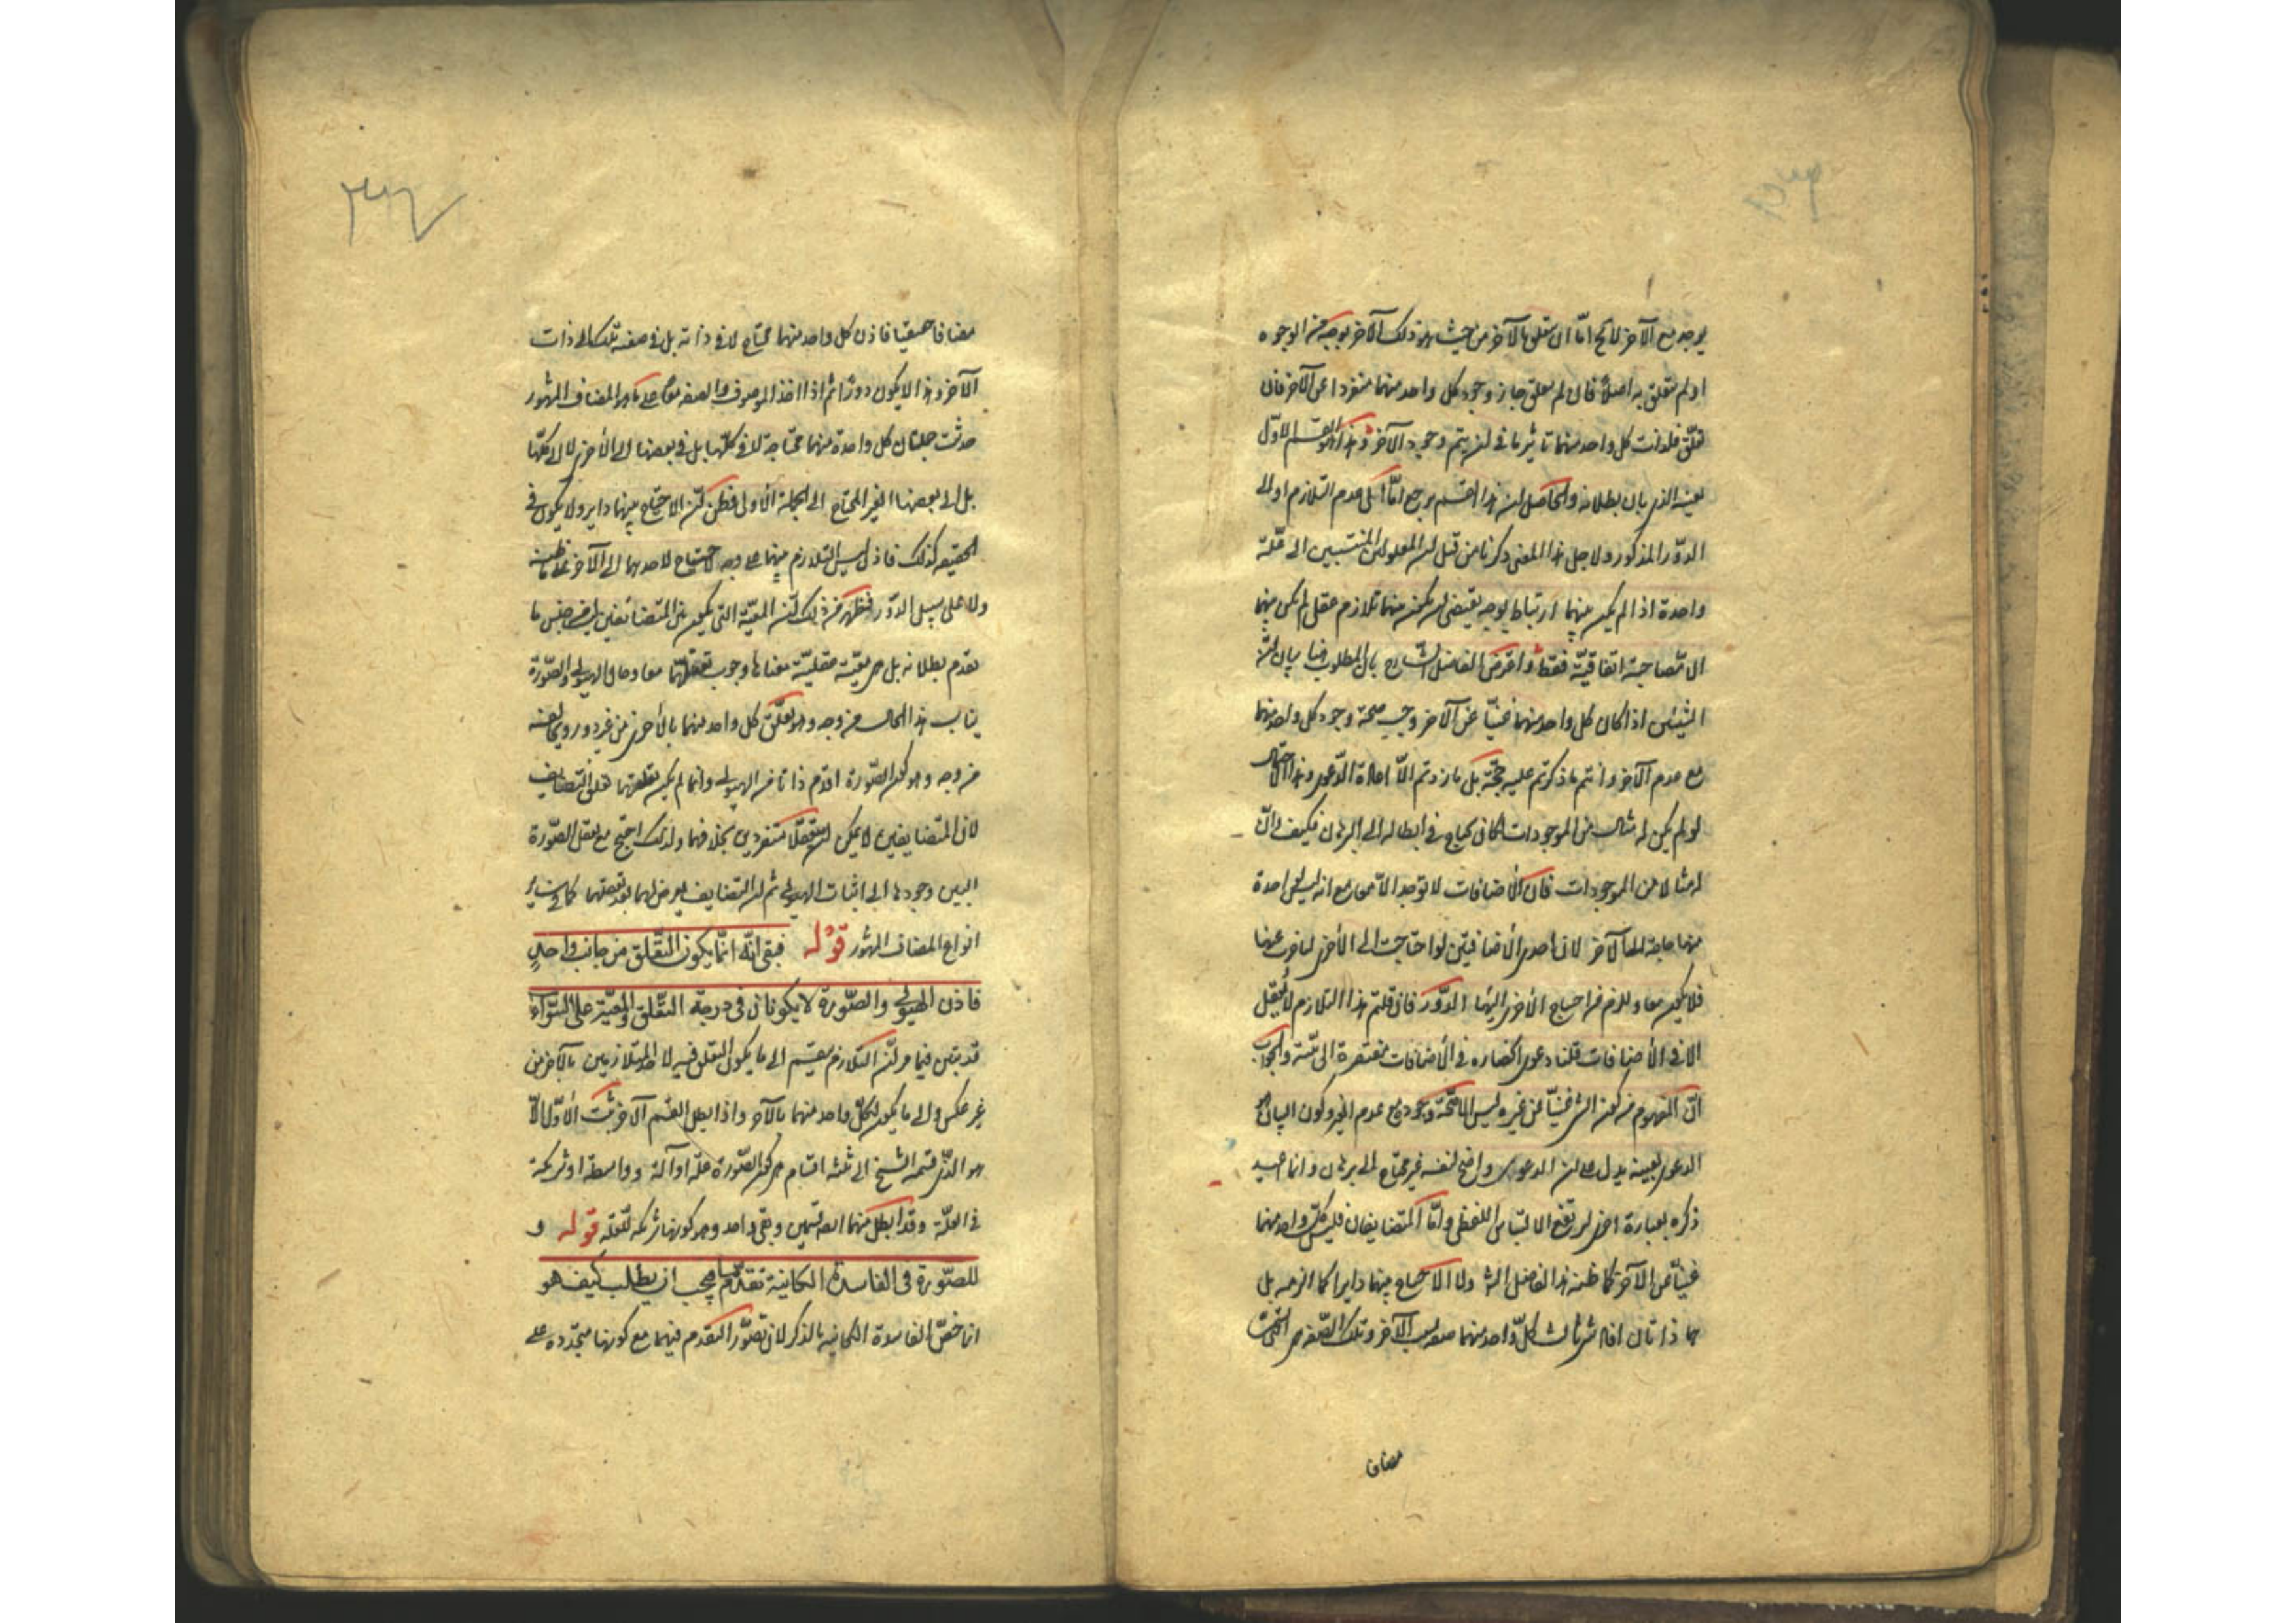 يوجد مع الآخر لا يخ امّا ان يتعلق بالآخر من حيث هو ذلك الآخر بوجه من الوجوه
او لم يتعلق به اصلا فان لم يتعلق جاز وجود كل واحد منهما منفردا عن الآخر فان
تعلّق فلذات كل واحد منهما تاثير ما فى ان يتم وجود الآخر وهذا هو القسم الاوّل
بعينه الذى بان بطلانه والحاصل ان هذا القسم يرجع امّا الى عدم التلازم او الى
الدّور المذكور ولاجل هذا المعنى ذكرنا من قبل ان المعلولين المنتسبين الى علّة
واحدة اذا لم يكن بينهما ارتباط بوجه يقتضى ان يكون بينهما تلازم عقلى لم يكن بينهما
الا مصاحبة اتفاقيّة فقط واعترض الفاضل الشارح بان المطلوب هنا بيان انّ
الشيئين اذا كان كل واحد منهما غنيّا عن الآخر وجب صحة وجود كل واحد منهما
مع عدم الآخر وانتم ما ذكرتم عليه حجّة بل ما زدتم الّا اعادة الدّعوى وهذا الاحتمال
لو لم يكن له مثال من الموجودات لكان يحتاج فى ابطاله الى البرهان فكيف وانّ
له مثالا من الموجودات فان الاضافات لا توجد الّا معا مع انه ليس لواحدة
منهما حاجة الى الآخر لان احدى الاضافتين لو احتاجت الى الاخرى لتاخرت عنها
فلا يكون معا ويلزم من احتياج الاخرى اليها الدّور فان قلتم هذا التلازم لا يعقل
الا فى الاضافات قلنا دعوى انحصاره فى الاضافات مفتقرة الى بيّنة والجواب
انّ المفهوم من كون الشئ غنيّا عن غيره ليس الا صحّة وجوده مع عدم الغير وكون البيان هو
الدعوى بعينه يدل على ان الدعوى واضح لنفسه غير محتاج الى برهان وانما اعيد
ذكره بعبارة اخرى ليرتفع الالتباس اللفظى وامّا المتضايفان فليس كلّ واحد منهما
غنيّا عن الآخر كما ظنه هذا الفاضل الش ولا الاحتياج بينهما دايرا كما الزمه بل
هما ذاتان افاد شئ ثالث كلّ واحد منهما صفة بسبب الآخر وتلك الصّفة هى التى تسمى
مضافا
مضافا حقيقيا فاذن كل واحد منهما محتاج لا فى ذاته بل فى صفته تلك الى ذات
الآخر وهذا لا يكون دورا ثم اذا اخذ الموصوف والصفة معا على ما هو المضاف المشهور
حدثت جملتان كل واحدة منهما محتاجة لا فى كلّها بل فى بعضها الى الاخرى لا الى كلّها
بل الى بعضها الغير المحتاج الى الجملة الاولى فظن انّ الاحتياج بينهما داير ولا يكون فى
الحقيقة كذلك فاذن ليس التلازم بينهما على وجه لا احتياج لاحدهما الى الآخر على ما ظنه
ولا على سبيل الدّور فظهر من ذلك انّ المعيّة التى يكون بين المتضائفين ليس من جنس ما
تقدم بطلانه بل هى معيّة عقليّة معناها وجوب تعقلهما معا وحال الهيولى والصّورة
يناسب هذا الحال من وجه وهو تعلّق كل واحد منهما بالاخرى من غير دور ويخالفه
من وجه وهو كون الصّورة اقدم ذاتا من الهيولى وانما لم يكن تعلقهما تعلق التضايف
لان المتضايفين لا يمكن ان يتعقّلا منفردين بخلافهما ولذلك احتيج مع تعقل الصّورة
البين وجودها الى اثبات الهيولى ثم ان التضايف يعرض لهما بعد تعقلهما كما فى سائر
انواع المضاف المشهور قوله فبقى انّه انّما يكون التعلّق من جانب واحدٍ
فاذن الهيولى والصّورة لا يكونان فى درجة التعلّق والمعيّة على السّواء
قد تبين فيما مر انّ التلازم ينقسم الى ما يكون التعلق فيه لاحد المتلازمين بالآخر من
غير عكس والى ما يكون لكلّ واحد منهما بالآخر واذا بطل القسم الآخر ثبت الاوّل الّا
هو الذى قسمه الشيخ الى ثلثه اقسام هى كون الصّورة علّة او آلة وواسطة او شريكة
فى العلّة وقد ابطل منها القسمين وبقى واحد وهو كونها شريكة للعلة قوله و
للصّورة فى الفاسدة الكاينة تقدّم ما فيجب ان يطلب كيف هو
انما خصّ الفاسدة الكائنية بالذكر لان تصوّر التقدم فيهما مع كونها متجدده على